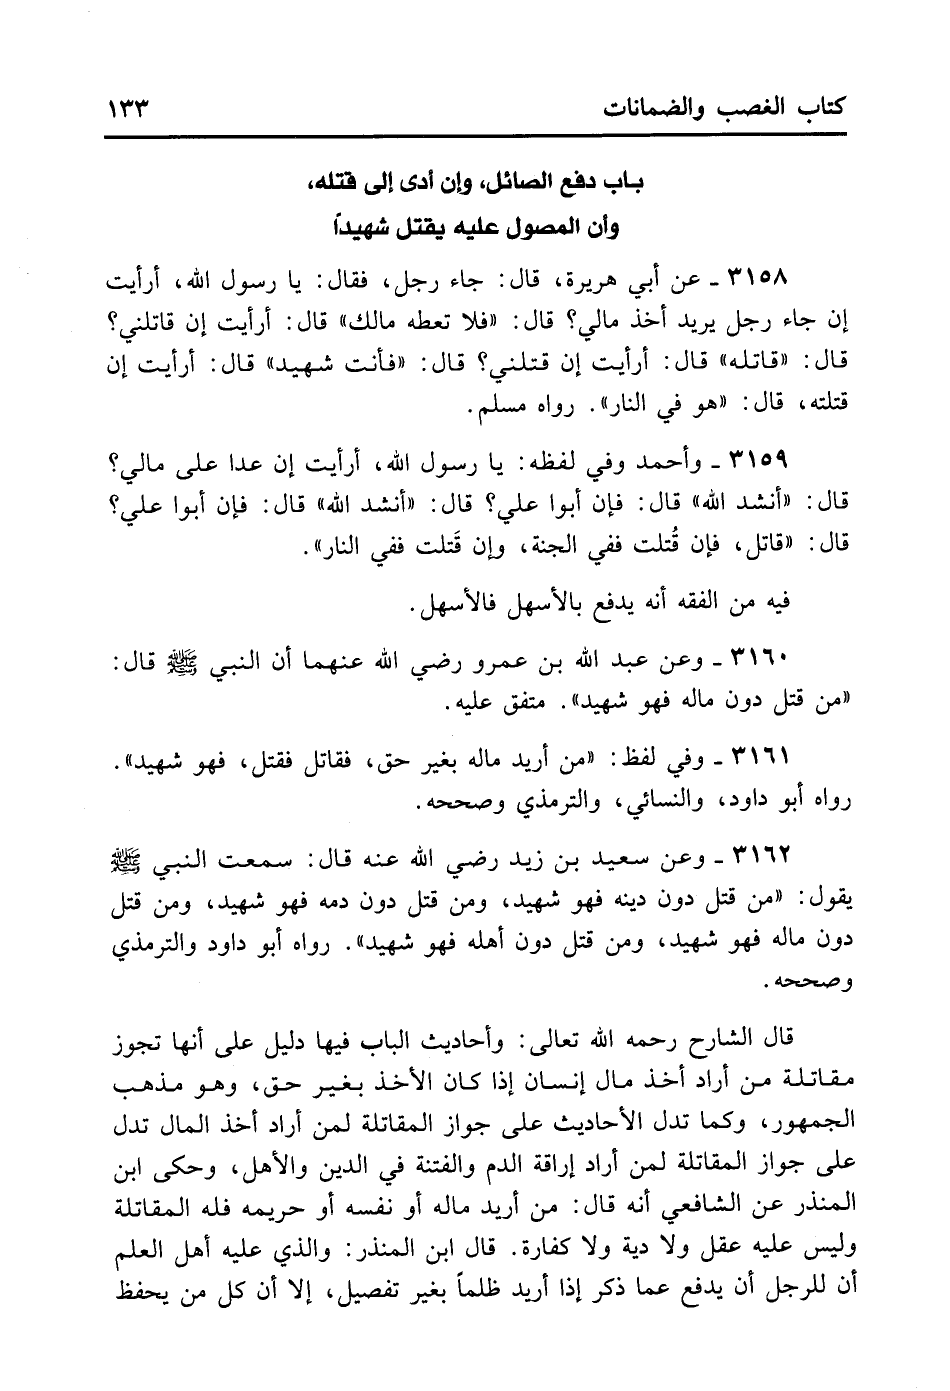 كتاب الغصب والضمانات ١٣٣
باب دفع الصائل، وإن أدى إلى قتله،
وأن المصول عليه يقتل شهيداً
٣١٥٨ ـ عن أبي هريرة، قال: جاء رجل، فقال: يا رسول الله، أرأيت
إن جاء رجل يريد أخذ مالي؟ قال: «فلا تعطه مالك» قال: أرأيت إن قاتلني؟
قال: «قاتله» قال: أرأيت إن قتلني؟ قال: «فأنت شهيد» قال: أرأيت إن
قتلته، قال: «هو في النار». رواه مسلم.
٣١٥٩ ـ وأحمد وفي لفظه: يا رسول الله، أرأيت إن عدا على مالي؟
قال: «أنشد الله» قال: فإن أبوا علي؟ قال: «أنشد الله» قال: فإن أبوا علي؟
قال: «قاتل، فإن قُتلت ففي الجنة، وإن قَتلت ففي النار».
فيه من الفقه أنه يدفع بالأسهل فالأسهل.
٣١٦٠ ـ وعن عبد الله بن عمرو رضي الله عنهما أن النبي ﷺ قال:
«من قتل دون ماله فهو شهيد». متفق عليه.
٣١٦١ ـ وفي لفظ: «من أريد ماله بغير حق، فقاتل فقتل، فهو شهيد».
رواه أبو داود، والنسائي، والترمذي وصححه.
٣١٦٢ ـ وعن سعيد بن زيد رضي الله عنه قال: سمعت النبي ﷺ
يقول: «من قتل دون دينه فهو شهيد، ومن قتل دون دمه فهو شهيد، ومن قتل
دون ماله فهو شهيد، ومن قتل دون أهله فهو شهيد». رواه أبو داود والترمذي
وصححه.
قال الشارح رحمه الله تعالى: وأحاديث الباب فيها دليل على أنها تجوز
مقاتلة من أراد أخذ مال إنسان إذا كان الأخذ بغير حق، وهو مذهب
الجمهور، وكما تدل الأحاديث على جواز المقاتلة لمن أراد أخذ المال تدل
على جواز المقاتلة لمن أراد إراقة الدم والفتنة في الدين والأهل، وحكى ابن
المنذر عن الشافعي أنه قال: من أريد ماله أو نفسه أو حريمه فله المقاتلة
وليس عليه عقل ولا دية ولا كفارة. قال ابن المنذر: والذي عليه أهل العلم
أن للرجل أن يدفع عما ذكر إذا أريد ظلماً بغير تفصيل، إلا أن كل من يحفظ